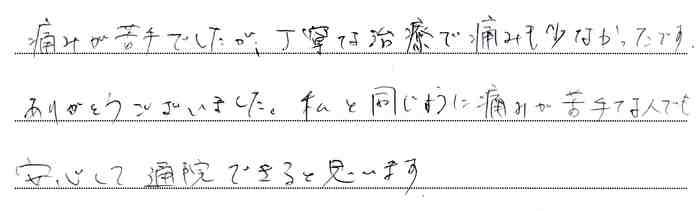 痛みが苦手でしたが、丁寧な治療で痛みも少なかったです。
ありがとうございました。私と同じように痛みが苦手な人でも
安心して通院できると思います。